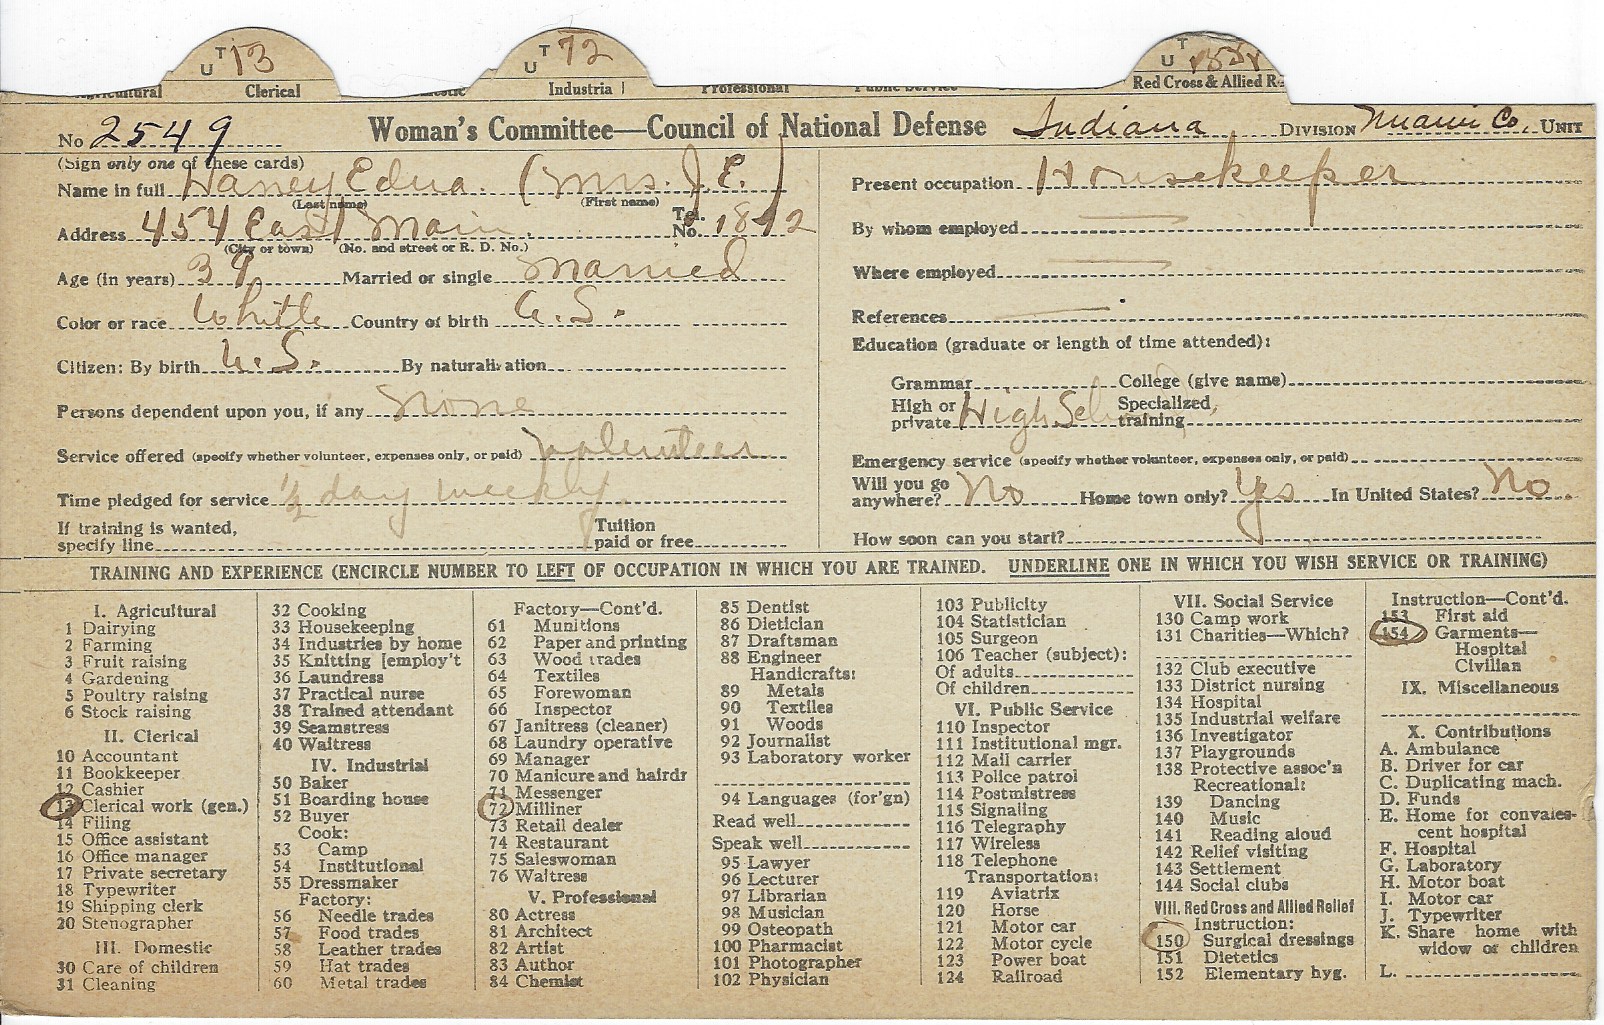 U T 13
U T 72
U T
Clerical
Industrial
Professional
Public Service
Red Cross & Allied R
No 2549 Woman's Committee—Council of National Defense Indiana DIVISION Miami Co. UNIT
(Sign only one of these cards)
Name in full Haney Edna. (Mrs. J. E.)
(Last name) (First name)
Address 454 East Main. Tel. No. 1872
(City or town) (No. and street or R. D. No.)
Age (in years) 39 Married or single Married
Color or race White Country of birth U.S.
Citizen: By birth U.S. By naturalization
Persons dependent upon you, if any None
Service offered (specify whether volunteer, expenses only, or paid) Volunteer
Time pledged for service ½ day weekly
If training is wanted, specify line Tuition paid or free
Present occupation Housekeeper
By whom employed
Where employed
References
Education (graduate or length of time attended):
Grammar College (give name)
High or private High School Specialized training
Emergency service (specify whether volunteer, expenses only, or paid)
Will you go anywhere? No Home town only? Yes In United States? No.
How soon can you start?
TRAINING AND EXPERIENCE (ENCIRCLE NUMBER TO LEFT OF OCCUPATION IN WHICH YOU ARE TRAINED. UNDERLINE ONE IN WHICH YOU WISH SERVICE OR TRAINING)
I. Agricultural
1 Dairying
2 Farming
3 Fruit raising
4 Gardening
5 Poultry raising
6 Stock raising
II. Clerical
10 Accountant
11 Bookkeeper
12 Cashier
13 Clerical work (gen.)
14 Filing
15 Office assistant
16 Office manager
17 Private secretary
18 Typewriter
19 Shipping clerk
20 Stenographer
III. Domestic
30 Care of children
31 Cleaning
32 Cooking
33 Housekeeping
34 Industries by home
35 Knitting [employ't
36 Laundress
37 Practical nurse
38 Trained attendant
39 Seamstress
40 Waitress
IV. Industrial
50 Baker
51 Boarding house
52 Buyer
Cook:
53 Camp
54 Institutional
55 Dressmaker
Factory:
56 Needle trades
57 Food trades
58 Leather trades
59 Hat trades
60 Metal trades
Factory—Cont'd.
61 Munitions
62 Paper and printing
63 Wood trades
64 Textiles
65 Forewoman
66 Inspector
67 Janitress (cleaner)
68 Laundry operative
69 Manager
70 Manicure and hairdr
71 Messenger
72 Milliner
73 Retail dealer
74 Restaurant
75 Saleswoman
76 Waitress
V. Professional
80 Actress
81 Architect
82 Artist
83 Author
84 Chemist
85 Dentist
86 Dietician
87 Draftsman
88 Engineer
Handicrafts:
89 Metals
90 Textiles
91 Woods
92 Journalist
93 Laboratory worker
94 Languages (for'gn)
Read well
Speak well
95 Lawyer
96 Lecturer
97 Librarian
98 Musician
99 Osteopath
100 Pharmacist
101 Photographer
102 Physician
103 Publicity
104 Statistician
105 Surgeon
106 Teacher (subject):
Of adults
Of children
VI. Public Service
110 Inspector
111 Institutional mgr.
112 Mail carrier
113 Police patrol
114 Postmistress
115 Signaling
116 Telegraphy
117 Wireless
118 Telephone
Transportation:
119 Aviatrix
120 Horse
121 Motor car
122 Motor cycle
123 Power boat
124 Railroad
VII. Social Service
130 Camp work
131 Charities—Which?
132 Club executive
133 District nursing
134 Hospital
135 Industrial welfare
136 Investigator
137 Playgrounds
138 Protective assoc'n
Recreational:
139 Dancing
140 Music
141 Reading aloud
142 Relief visiting
143 Settlement
144 Social clubs
VIII. Red Cross and Allied Relief
Instruction:
150 Surgical dressings
151 Dietetics
152 Elementary hyg.
Instruction—Cont'd.
153 First aid
154 Garments—
Hospital
Civilian
IX. Miscellaneous
X. Contributions
A. Ambulance
B. Driver for car
C. Duplicating mach.
D. Funds
E. Home for convales-
cent hospital
F. Hospital
G. Laboratory
H. Motor boat
I. Motor car
J. Typewriter
K. Share home with
widow or children
L.